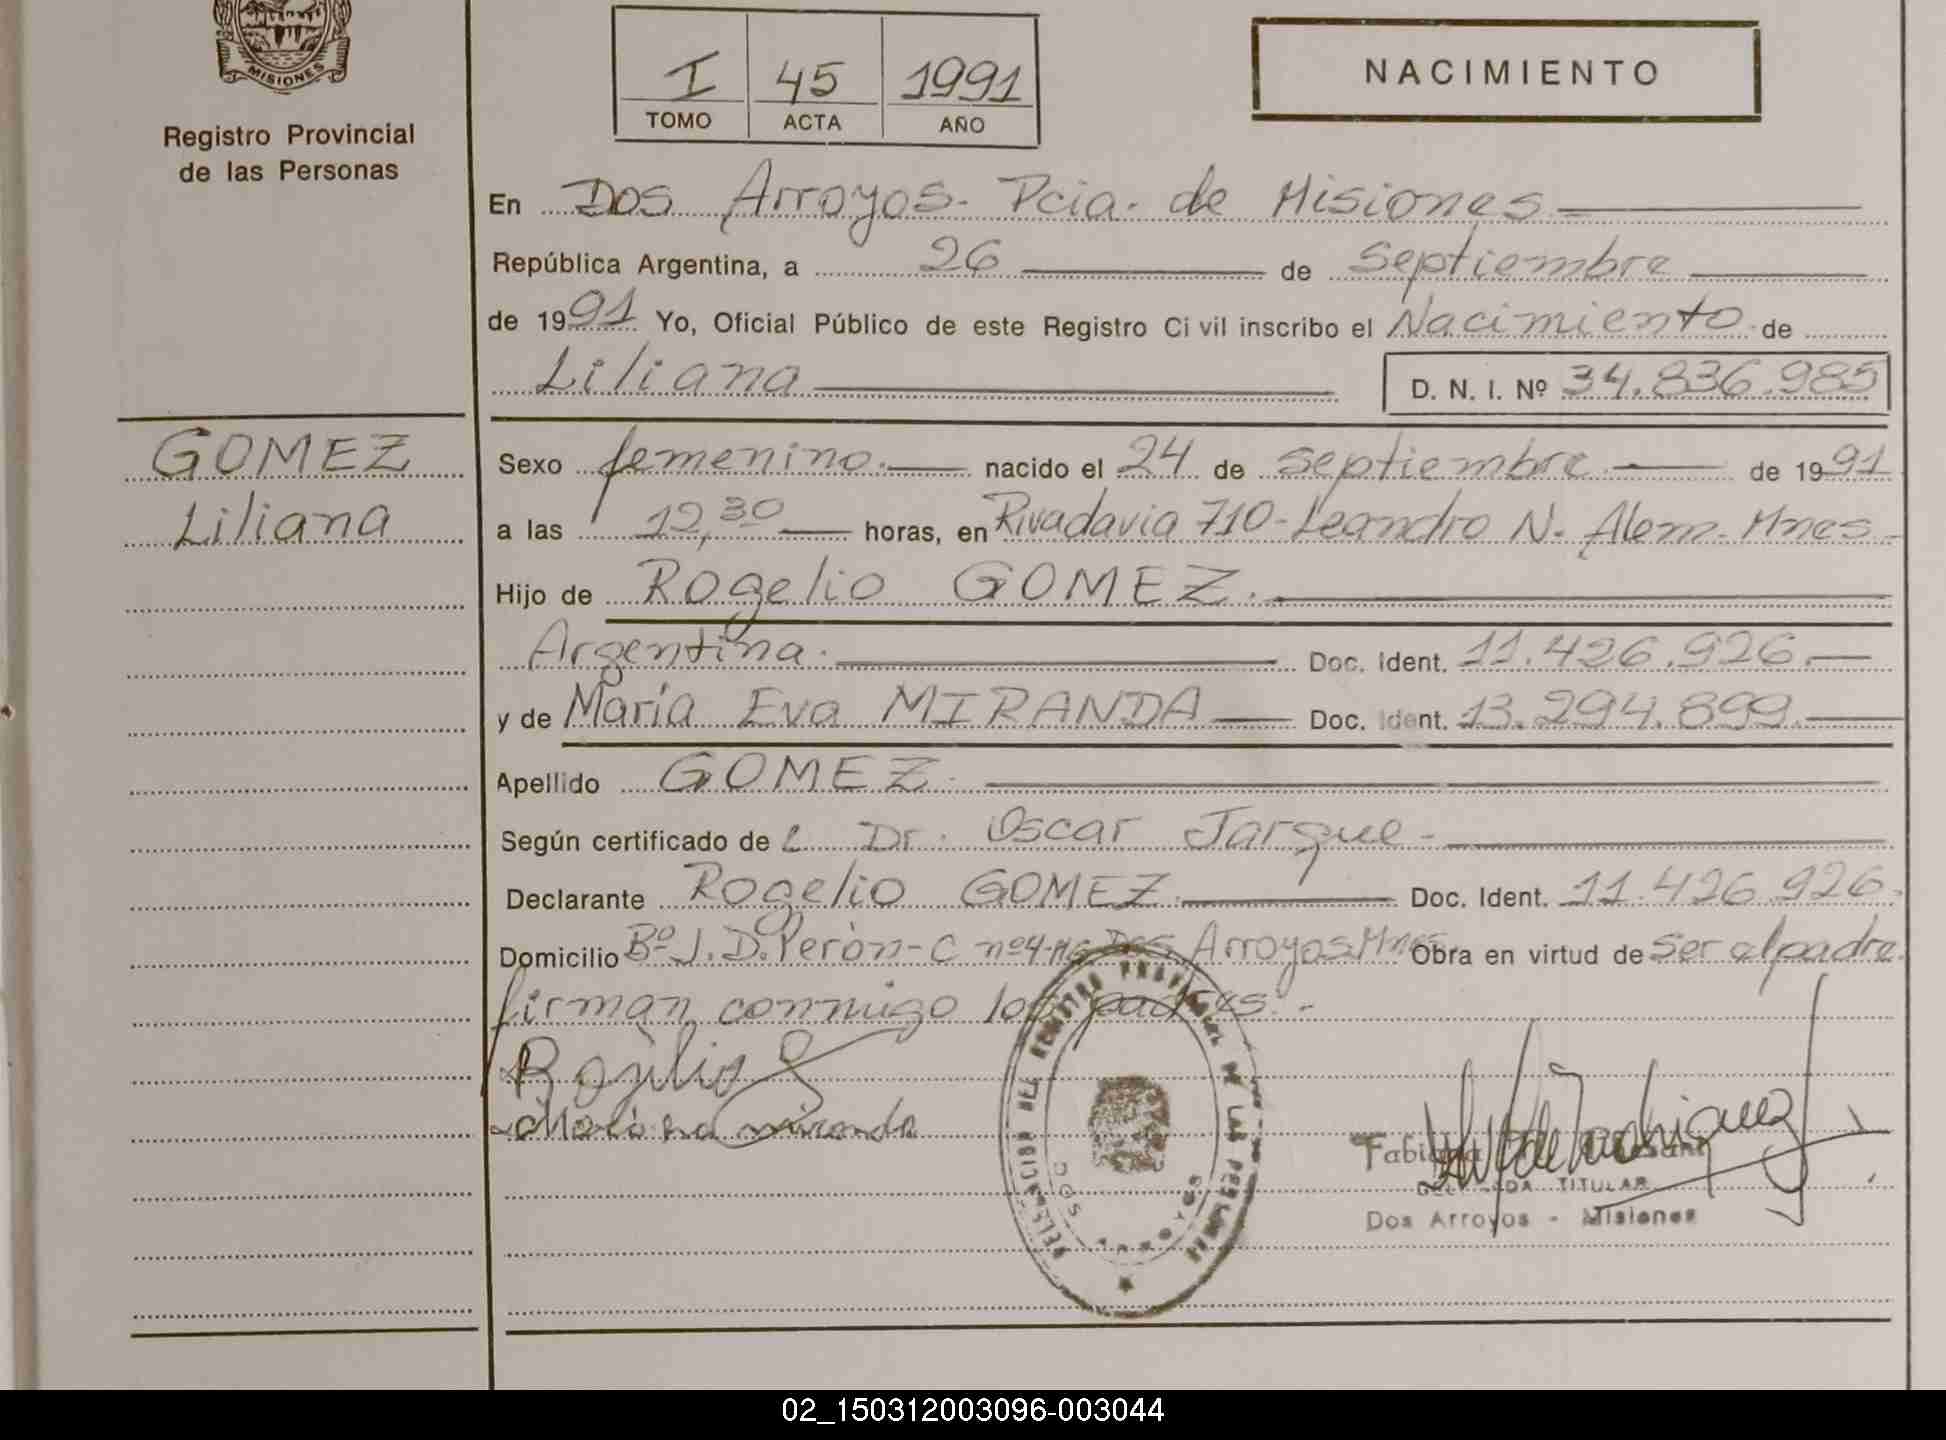 MISIONES
Registro Provincial
de las Personas
I 45 1991
TOMO ACTA AÑO
NACIMIENTO
En Dos Arroyos. Pcia. de Misiones
República Argentina, a 26 de Septiembre
de 1991 Yo, Oficial Público de este Registro Civil inscribo el Nacimiento de
Liliana D. N. I. Nº 34.836.985
GOMEZ
Liliana
Sexo femenino. nacido el 24 de septiembre. de 1991
a las 12,30 horas, en Rivadavia 710 - Leandro N. Alem. Mnes -
Hijo de Rogelio GOMEZ.
Argentina. Doc. Ident. 11.426.926.
y de María Eva MIRANDA Doc. Ident. 13.294.899.
Apellido GOMEZ.
Según certificado de Dr. Oscar Jarque -
Declarante Rogelio GOMEZ Doc. Ident. 11.426.926.
Domicilio Bº J. D. Perón - C nº4 Dos Arroyos Mnes Obra en virtud de ser el padre.
firman conmigo los padres. -
DELEGACION DEL REGISTRO PROVINCIAL DE LAS PERSONAS
DOS ARROYOS
TITULAR
Dos Arroyos - Misiones
02_150312003096-003044